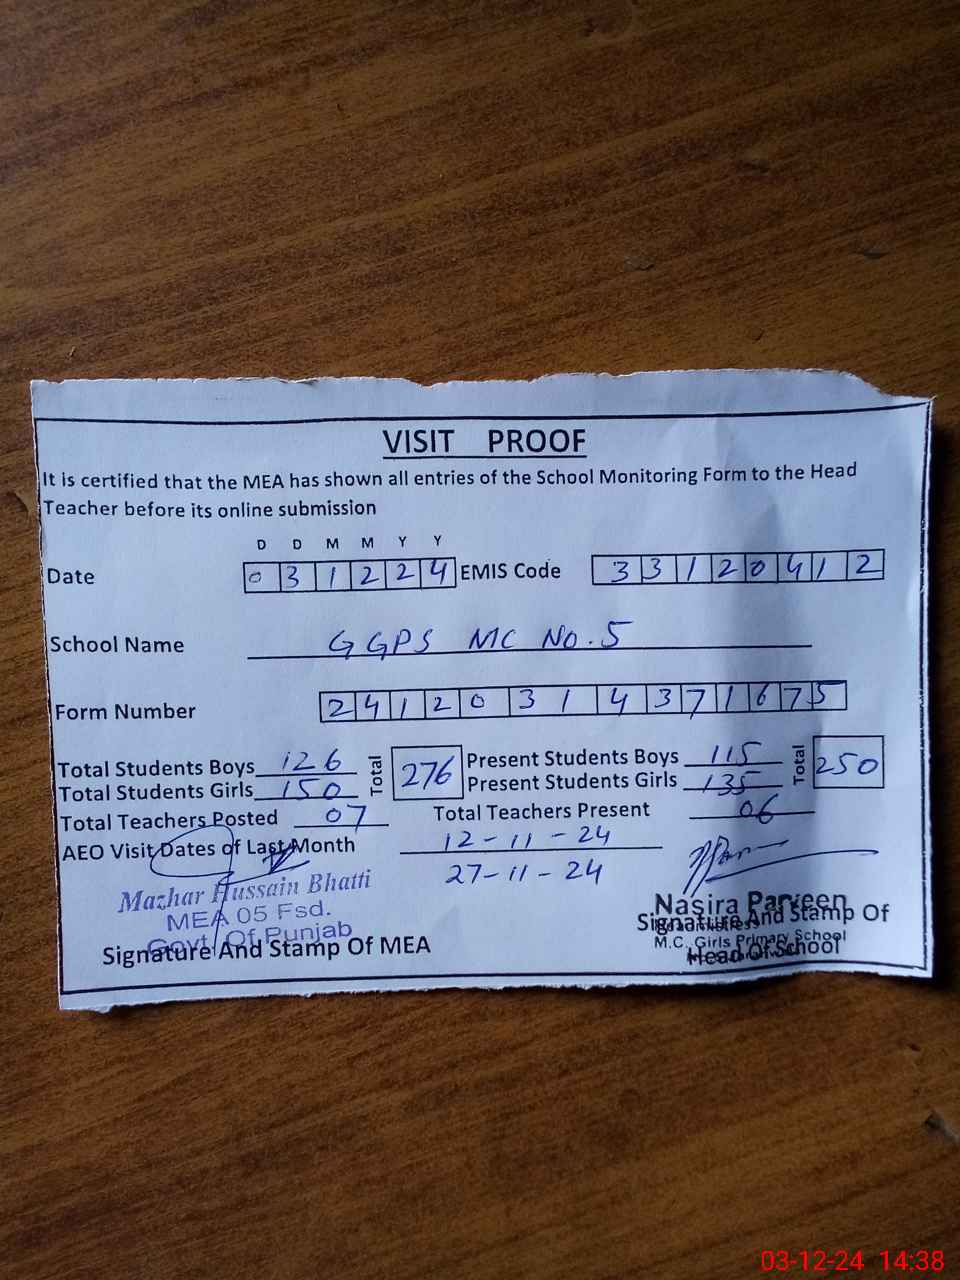 VISIT PROOF
It is certified that the MEA has shown all entries of the School Monitoring Form to the Head
Teacher before its online submission
D D M M Y Y
Date 0 3 1 2 2 4 EMIS Code 3 3 1 2 0 4 1 2
School Name G GPS MC NO. 5
Form Number 2 4 1 2 0 3 1 4 3 7 1 6 7 5
Total Students Boys 126 Total 276 Present Students Boys 115 Total 250
Total Students Girls 150 Present Students Girls 135
Total Teachers Posted 07 Total Teachers Present 06
AEO Visit Dates of Last Month 12-11-24
27-11-24
Mazhar Hussain Bhatti
MEA 05 Fsd.
Govt. Of Punjab
Signature And Stamp Of MEA
Nasira Parveen
Signature And Stamp Of
Headmistress
M.C. Girls Primary School
Head Of School
03-12-24 14:38